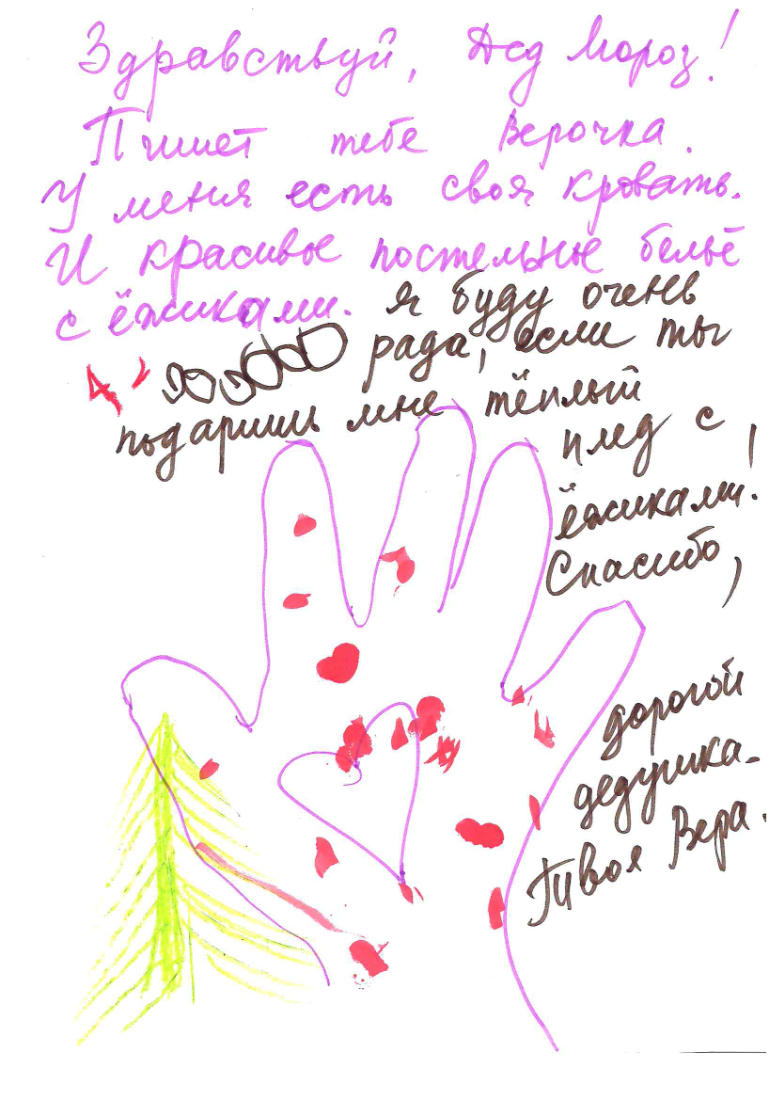 Здравствуй, Дед Мороз!
Пишет тебе Верочка.
У меня есть своя кровать.
И красивое постельное бельё
с ёжиками. Я буду очень
рада, если ты
подаришь мне тёплый
плед с
ёжиками!
Спасибо,
дорогой
дедушка.
Твоя Вера.